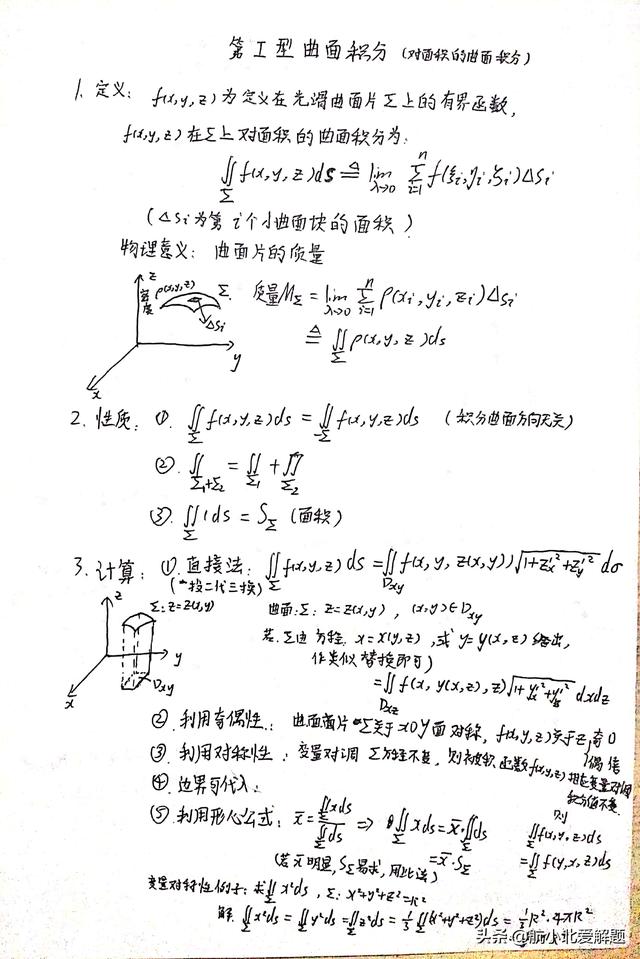 第Ⅰ型曲面积分 (对面积的曲面积分)
1. 定义: f(x,y,z)为定义在光滑曲面片Σ上的有界函数,
f(x,y,z)在Σ上对面积的曲面积分为:
∬_Σ f(x,y,z)ds ≜ lim_{λ→0} Σ_{i=1}^{n} f(ξi,ηi,ζi)ΔSi
(ΔSi为第i个小曲面块的面积)
物理意义: 曲面片的质量
z ρ(x,y,z) Σ. 质量M_Σ = lim_{λ→0} Σ_{i=1}^{n} ρ(xi,yi,zi)ΔSi
密度 ΔSi
≜ ∬_Σ ρ(x,y,z)ds
y
x
2. 性质: ①. ∬_Σ f(x,y,z)ds = ∬_{-Σ} f(x,y,z)ds (积分曲面方向无关)
②. ∬_{Σ1+Σ2} = ∬_{Σ1} + ∬_{Σ2}
③. ∬_Σ 1ds = S_Σ (面积)
3. 计算: ①. 直接法: ∬_Σ f(x,y,z)ds = ∬_{Dxy} f(x,y,z(x,y))√(1+z'x²+z'y²) dσ
(一投二代三换)
z Σ:z=z(x,y) 曲面:Σ: z=z(x,y), (x,y)∈Dxy
y 若Σ由方程 x=x(y,z), 或 y=y(x,z)给出,
x Dxy 作类似替换即可)
=∬_{Dxz} f(x,y(x,z),z)√(1+y'x²+y'z²) dxdz
② 利用奇偶性: 曲面Σ关于xoy面对称, f(x,y,z)关于z 奇 0
偶 倍
③ 利用对称性: 变量对调Σ方程不变, 则被积函数f(x,y,z)相应变量对调
积分值不变
④ 边界可代入.
则
⑤ 利用形心公式: x̄ = ∬_Σ xds / ∬_Σ ds ⇒ ∬_Σ xds = x̄·∬_Σ ds ∬_Σ f(x,y,z)ds
(若x̄明显, S_Σ易求, 用此法) = x̄·S_Σ =∬_Σ f(y,x,z)ds
变量对称性例子: 求∬_Σ x²ds, Σ: x²+y²+z²=R²
解: ∬_Σ x²ds = ∬_Σ y²ds = ∬_Σ z²ds = 1/3 ∬_Σ (x²+y²+z²)ds = 1/3 R²·4πR²
头条 @航小北爱解题